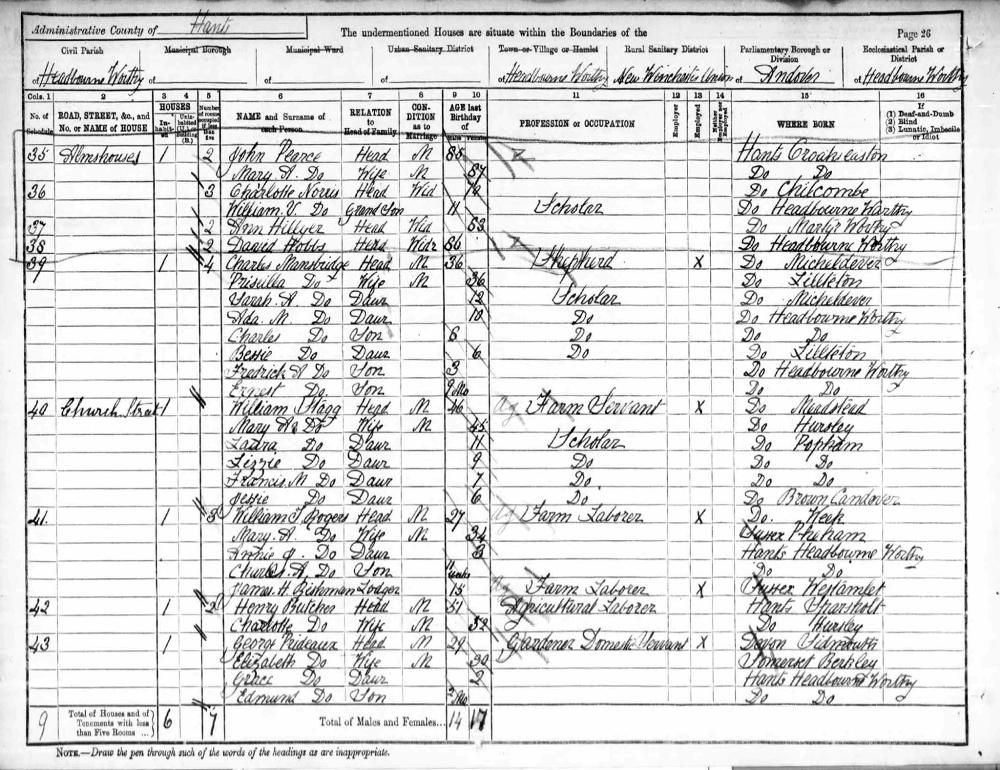 Administrative County of Hants
The undermentioned Houses are situate within the Boundaries of the
Page 26
Civil Parish Municipal Borough Municipal Ward Urban Sanitary District Town or Village or Hamlet Rural Sanitary District Parliamentary Borough or Division Ecclesiastical Parish or District
of Headbourne Worthy of of of of Headbourne Worthy of New Winchester Union of Andover of Headbourne Worthy
Cols. 1 2 3 4 5 6 7 8 9 10 11 12 13 14 15 16
No. of Schedule ROAD, STREET, &c., and No. or NAME of HOUSE HOUSES Inhabited Uninhabited (U.) or Building (B.) Number of rooms occupied if less than five NAME and Surname of each Person RELATION to Head of Family CONDITION as to Marriage AGE last Birthday of Males Females PROFESSION or OCCUPATION Employer Employed Neither WHERE BORN If (1) Deaf-and-Dumb (2) Blind (3) Lunatic, Imbecile or Idiot
35 Almshouses 1 2 John Pearce Head M 85 Hants
Mary A. Do Wife M 87 Do Do
36 3 Charlotte Norris Head Wid Do Chilcombe
William V. Do Grand Son 11 Scholar Do Headbourne Worthy
37 2 Ann Hillyer Head Wid 83 Do Martyr Worthy
38 2 David Hobbs Head Widr 86 Do Headbourne Worthy
39 1 4 Charles Mansbridge Head M 36 Shepherd X Do Micheldever
Priscilla Do Wife M 36 Do Lillteton
Sarah A. Do Daur 12 Scholar Do Micheldever
Ada. M. Do Daur 10 Do Do Headbourne Worthy
Charles Do Son 8 Do Do Do
Bessie Do Daur 6 Do Do Lillteton
Fredrick A Do Son 3 Do Headbourne Worthy
Ernest Do Son 9 Mo Do Do
40 Church Street 1 William Stagg Head M 46 Ag Farm Servant X Do Meadstead
Mary A. Do Wife M 45 Do Hursley
Laura Do Daur 11 Scholar Do Popham
Lizzie Do Daur 9 Do Do Do
Francis. M Do Daur 7 Do Do Do
Jessie Do Daur 6 Do Do Brown Candover
41. 1 3 William T. Rogers Head M 27 Ag Farm Laborer X Do. Week
Mary. A. Do Wife M 34 Sussex
Annie J. Do Daur 3 Hants Headbourne Worthy
Charles. A. Do Son Do Do
James. H. Lodger 15 Ag Farm Laborer X Sussex
42 1 2 Henry Butcher Head M 51 Agricultural Laborer Hants Sparsholt
Charlotte Do Wife M 52 Do Hursley
43 1 George Prideaux Head M 29 Gardener Domestic Servant X Devon Sidmouth
Elizabeth Do Wife M 30 Somerset Berkley
Grace Do Daur 2 Hants Headbourne Worthy
Edmund Do Son Mo Do Do
9 Total of Houses and of Tenements with less than Five Rooms ... 6 7 Total of Males and Females... 14 17
NOTE.—Draw the pen through such of the words of the headings as are inappropriate.